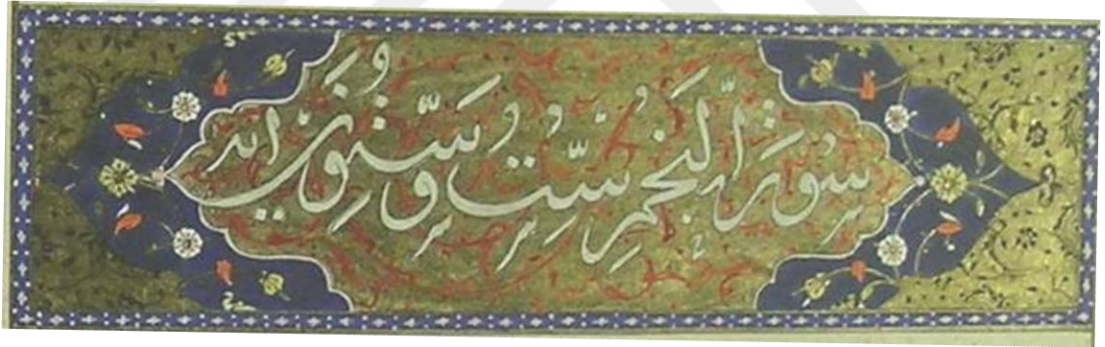 سُورَةُ النَّجْمِ سِتٌّ وَسِتُّونَ اٰيَةً